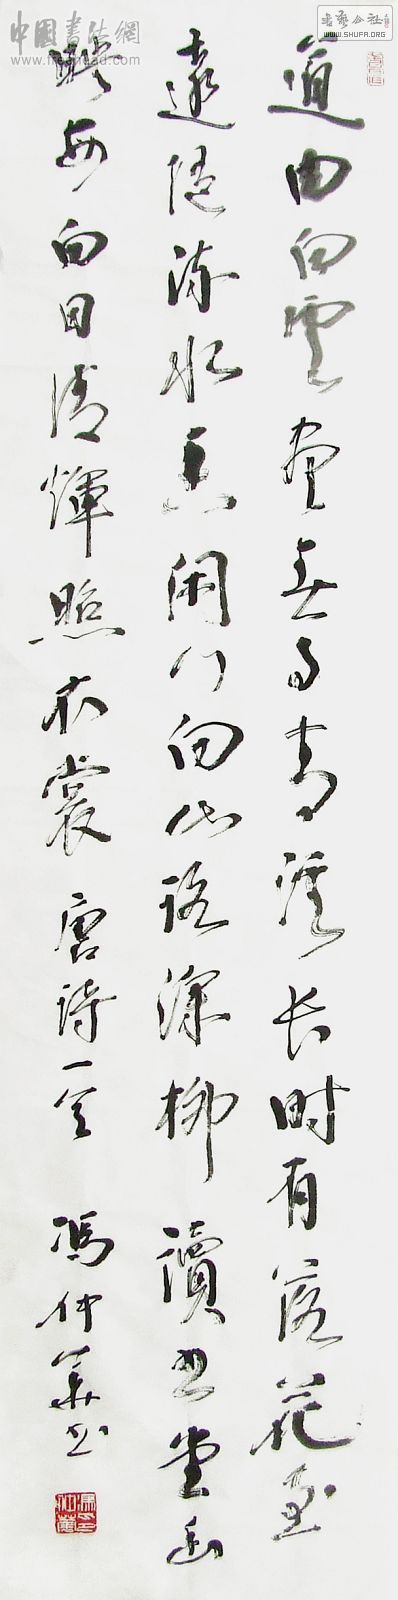 道由白雲盡春与青溪长时有落花至
遠随流水香闲门向山路深柳讀书堂幽
映每白日清輝照衣裳 唐詩一首 馮仲華书
中國書法網
www.freehead.com
书艺公社
WWW.SHUFA.ORG